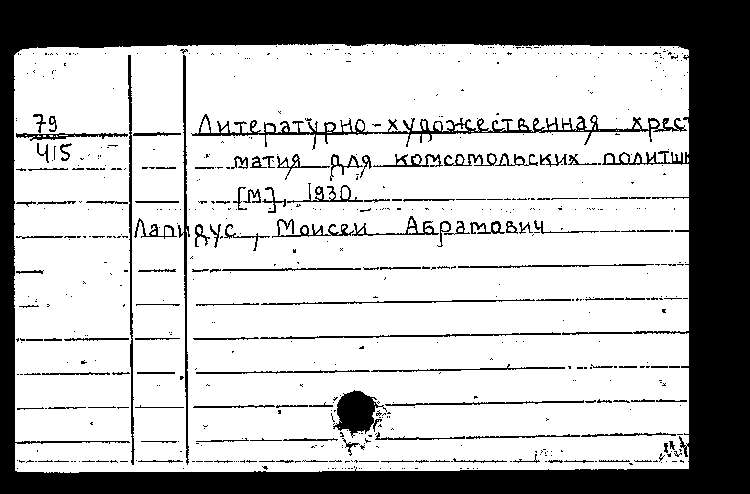 79
415
Литературно-художественная хрест
матия для комсомольских политш
[М], 1930.
Лапидус, Моисей Абрамович